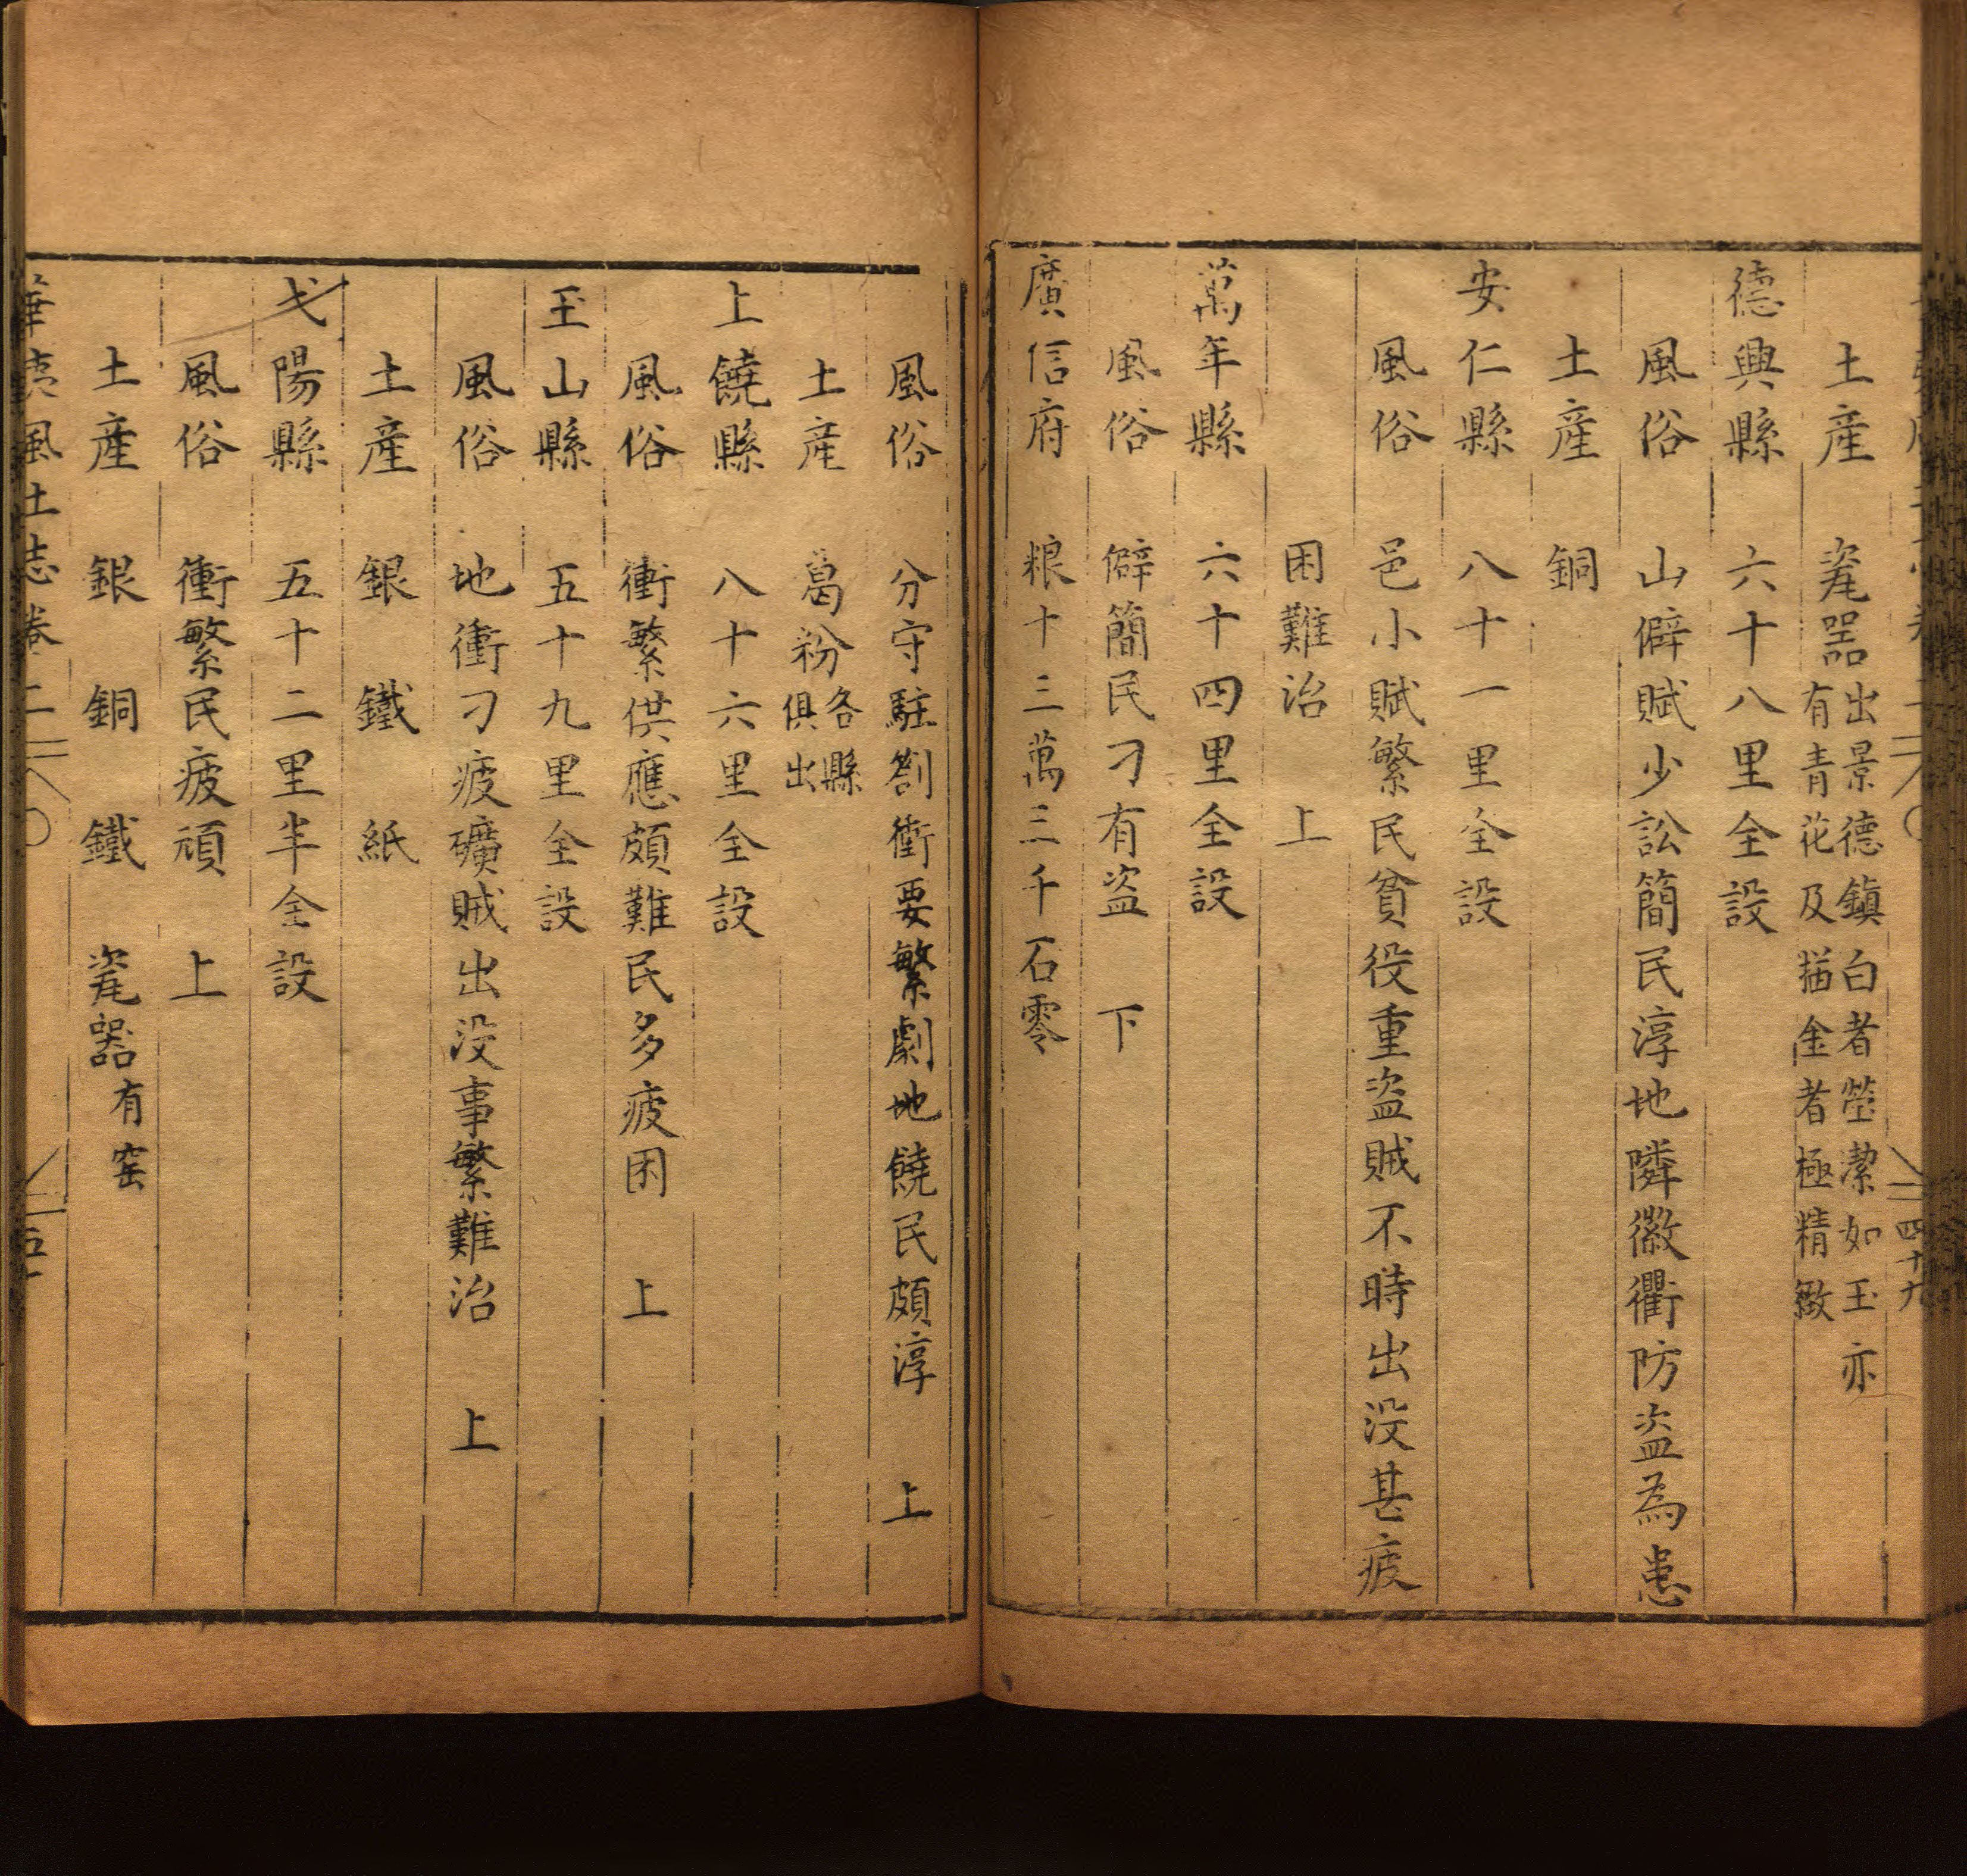 土産　瓷器出景德鎮白者瑩潔如玉亦
有青花及描金者極精緻
德興縣　六十八里全設
風俗　山僻賦少訟簡民淳地隣徽衢防盗為患
土産　銅
安仁縣　八十一里全設
風俗　邑小賦繁民貧役重盗賊不時出没甚疲
困難治　上
萬年縣　六十四里全設
風俗　僻簡民刁有盗　下
廣信府　粮十三萬三千石零
四十九
風俗　分守駐劄衝要繁劇地饒民頗淳　上
土産　葛粉各縣
俱出
上饒縣　八十六里全設
風俗　衝繁供應頗難民多疲困　上
玉山縣　五十九里全設
風俗　地衝刁疲礦賊出没事繁難治　上
土産　銀　鐵　紙
弋陽縣　五十二里半全設
風俗　衝繁民疲頑　上
土産　銀　銅　鐵　瓷器有窑
華夷風土志卷二